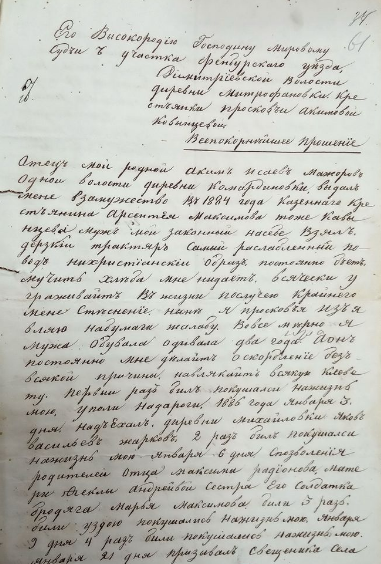 Его Високородію Господину Мировому
Судьи 4 участка Оренбургского уезда
Димитріевской Волости
деревни Митрофановки Кре
стьянки Просковьи Акимовой
Ковынцевой
Всепокорнейшее Прошеніе
Отецъ мой родной Акимъ Исаевъ Мажоровъ
одной волости деревни Комардиновки, выдалъ
мене Взамужество въ 1884 года Казеннаго Кре
стьянина Арсентія Максимова тоже Кавы
нцева Мужъ мой законный насебе Взялъ
дерзкій Самый по
водъ нихристіанскій Образъ, постоянно бьетъ
мучитъ хлѣба мне нидаетъ, всячески у
граживаитъ В жизни послучею Крайняго
мене Стесненіе, ныне я Просковья Изъя
вляю набумага жалобу. Вовсе я
Мужа Обувала одивала два года Аонъ
постоянно мне дилаитъ оскорбленіе безъ
всякой причины, навлякаитъ всякую клеве
ту. Первый разъ билъ покушался нажизнь
мою, уполи надароги, 1886 года Января 3.
дня, надъехалъ деревни Михайловки Яковъ
Васильевъ Жарковъ, 2 разъ билъ покушался
нажизнь мою Января 6 дня Спозволенія
родителей Отца Максима радіонова, мате
ри Феклы Андреевой Сестра Его Солдатка
бродяга Марья Максимова били 3 разъ
били уздою покушались Нажизнь мою, Января
9 дня 4 разъ били покушались нажизнь мою
Января 21 дня призывалъ Священика Села